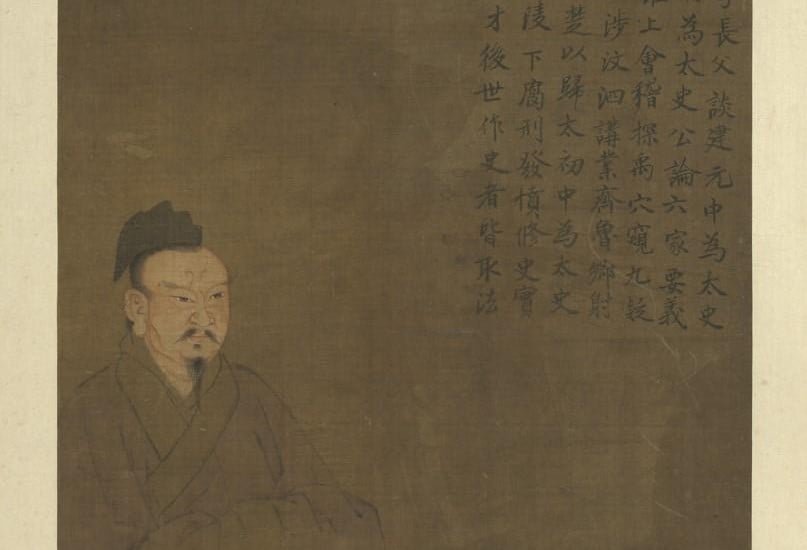 長父談建元中為太史
為太史公論六家要義
上會稽探禹穴窺九疑
涉汶泗講業齊魯鄉射
楚以歸太初中為太史
陵下腐刑發憤修史實
才後世作史者皆取法